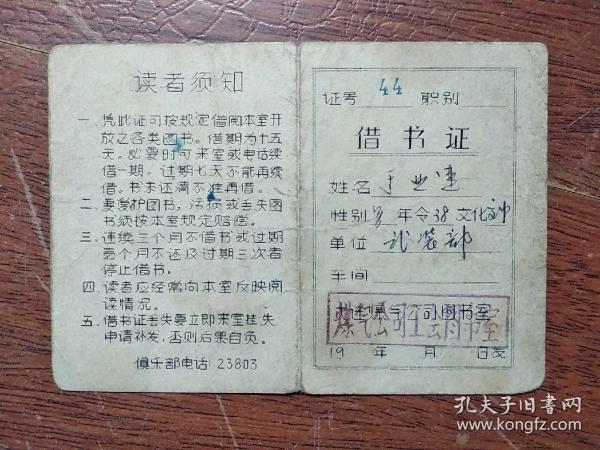 读者须知
一、凭此证可按规定借阅本室开
放之各类图书。借期为十五
天。必要时可来室或电话续
借一期。过期七天不能再续
借。书未还清不准再借。
二、要爱护图书，污损或丢失图
书须按本室规定赔偿。
三、连续三个月不借书或过期
两个月不还及过期三次者
停止借书。
四、读者应经常向本室反映阅
读情况。
五、借书证丢失要立即来室挂失
申请补发，否则后果自负。
俱乐部电话：23803
证号 44 职别
借书证
姓名 于世
性别 男 年令 38 文化
单位 武装部
车间
大连煤气公司图书室
煤气公司工会图书室
19 年 月 日发
孔夫子旧书网
www.kongfz.com